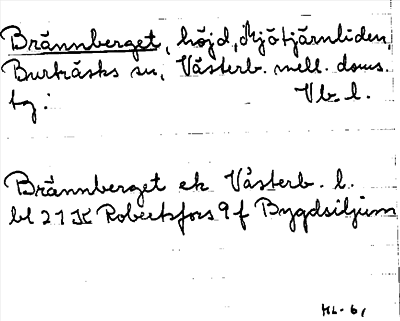 Brännberget, höjd, Mjötjärnliden,
Burträsks sn, Västerb. mell. doms.
tg: Vb. l.
Brännberget ek Västerb. l.
bl 21 K Robertsfors 9 f Bygdsiljum
HL-61